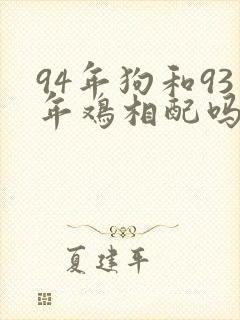 94年狗和93
年鸡相配吗
夏建平